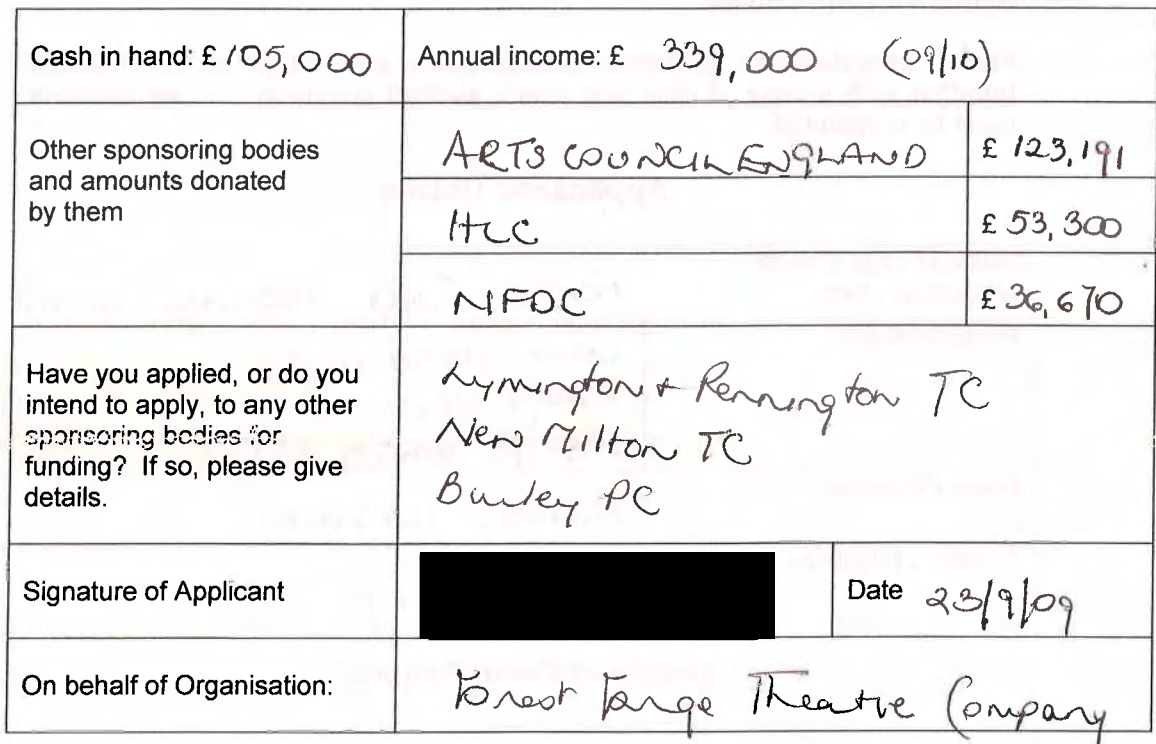 Cash in hand: £ 105,000
Annual income: £ 339,000 (09/10)
Other sponsoring bodies
and amounts donated
by them
ARTS COUNCIL ENGLAND £ 123,191
HCC £ 53,300
NFDC £ 36,670
Have you applied, or do you
intend to apply, to any other
sponsoring bodies for
funding? If so, please give
details.
Lymington + Pennington TC
New Milton TC
Burley PC
Signature of Applicant
Date 23/9/09
On behalf of Organisation:
Forest Forge Theatre Company